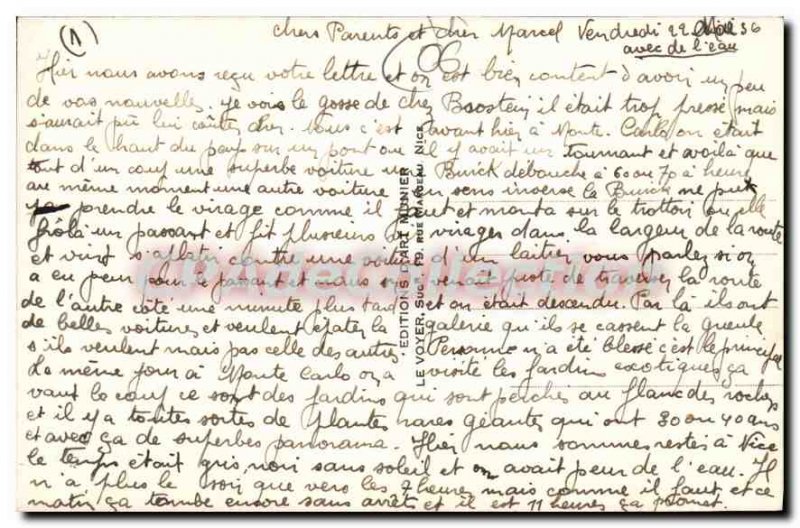 (1)
chers Parents et cher Marcel Vendredi 22 Mai 36
avec de l'eau
Hier nous avons reçu votre lettre et on est bien content d'avoir un peu
de vos nouvelles. je vois le gosse de chez il était trop pressé mais
s'aurait pu lui coûter cher. nous c'est avant hier à Monte. Carlo on était
dans le haut du pays sur un pont ou il y avait un tournant et voilà que
tout d'un coup une superbe voiture une Buick débouche à 60 ou 70 à heure
au même moment une autre voiture en sens inverse la Buick ne put
prendre le virage comme il faut et monta sur le trottoir ou elle
frôla un passant et fit plusieurs virages dans la largeur de la route
et vint s'aplatir contre une voiture d'un laitier vous parlez si on
a eu peur pour le passant et nous on venait juste de traverser la route
de l'autre côté une minute plus tard et on était descendu. Par là ils ont
de belles voitures et veulent épater la galerie qu'ils se cassent la gueule
s'ils veulent mais pas celle des autres Personne n'a été blessé c'est le principal
Le même jour à Monte Carlo on a visité les Jardins exotiques ça
vaut le coup ce sont des jardins qui sont perchés au flanc des rochers
et il y a toutes sortes de plantes rares géantes qui ont 30 ou 40 ans
et avec ça de superbes panorama. Hier nous sommes restés à Nice
le temps était gris noir sans soleil et on avait peur de l'eau. Il
n'a plus le soir que vers les 7 heures mais comme il faut et ce
matin ça tombe encore sans arrêt et il est 11 heures ça promet.
EDITIONS D'ART MUNIER
LE VOYER, SUCR, 19, RUE MARCEAU NICE